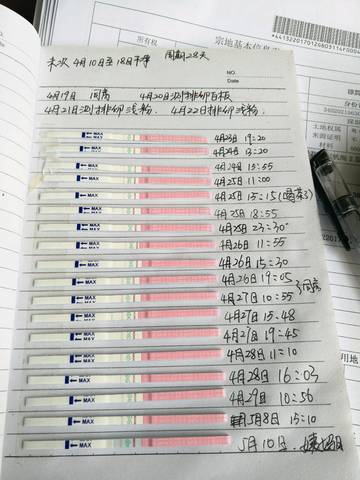 宗地基本信息
所有权
*441322017012080311400
末次 4月10日至18日干净 周期28天
NO.
Date
4月19日 同房 4月20日测排卵白板
4月21日测排卵浅粉. 4月22日排卵浅粉.
MAX 4月23日 19:20
MAX 4月24日 13:20
MAX 4月24日 15:55
MAX 4月25日 11:00
MAX 4月25日 15:15
MAX 4月25日 18:55
MAX 4月25日 23:30
MAX 4月26日 11:55
MAX 4月26日 15:30
MAX 4月26日 19:05 同房
MAX 4月27日 10:55
MAX 4月27日 15:48
MAX 4月27日 19:45
MAX 4月28日 11:10
MAX 4月28日 16:03
MAX 4月29日 10:56
MAX 5月8日 15:10
MAX 5月10日
土地权属
来源证明
用地